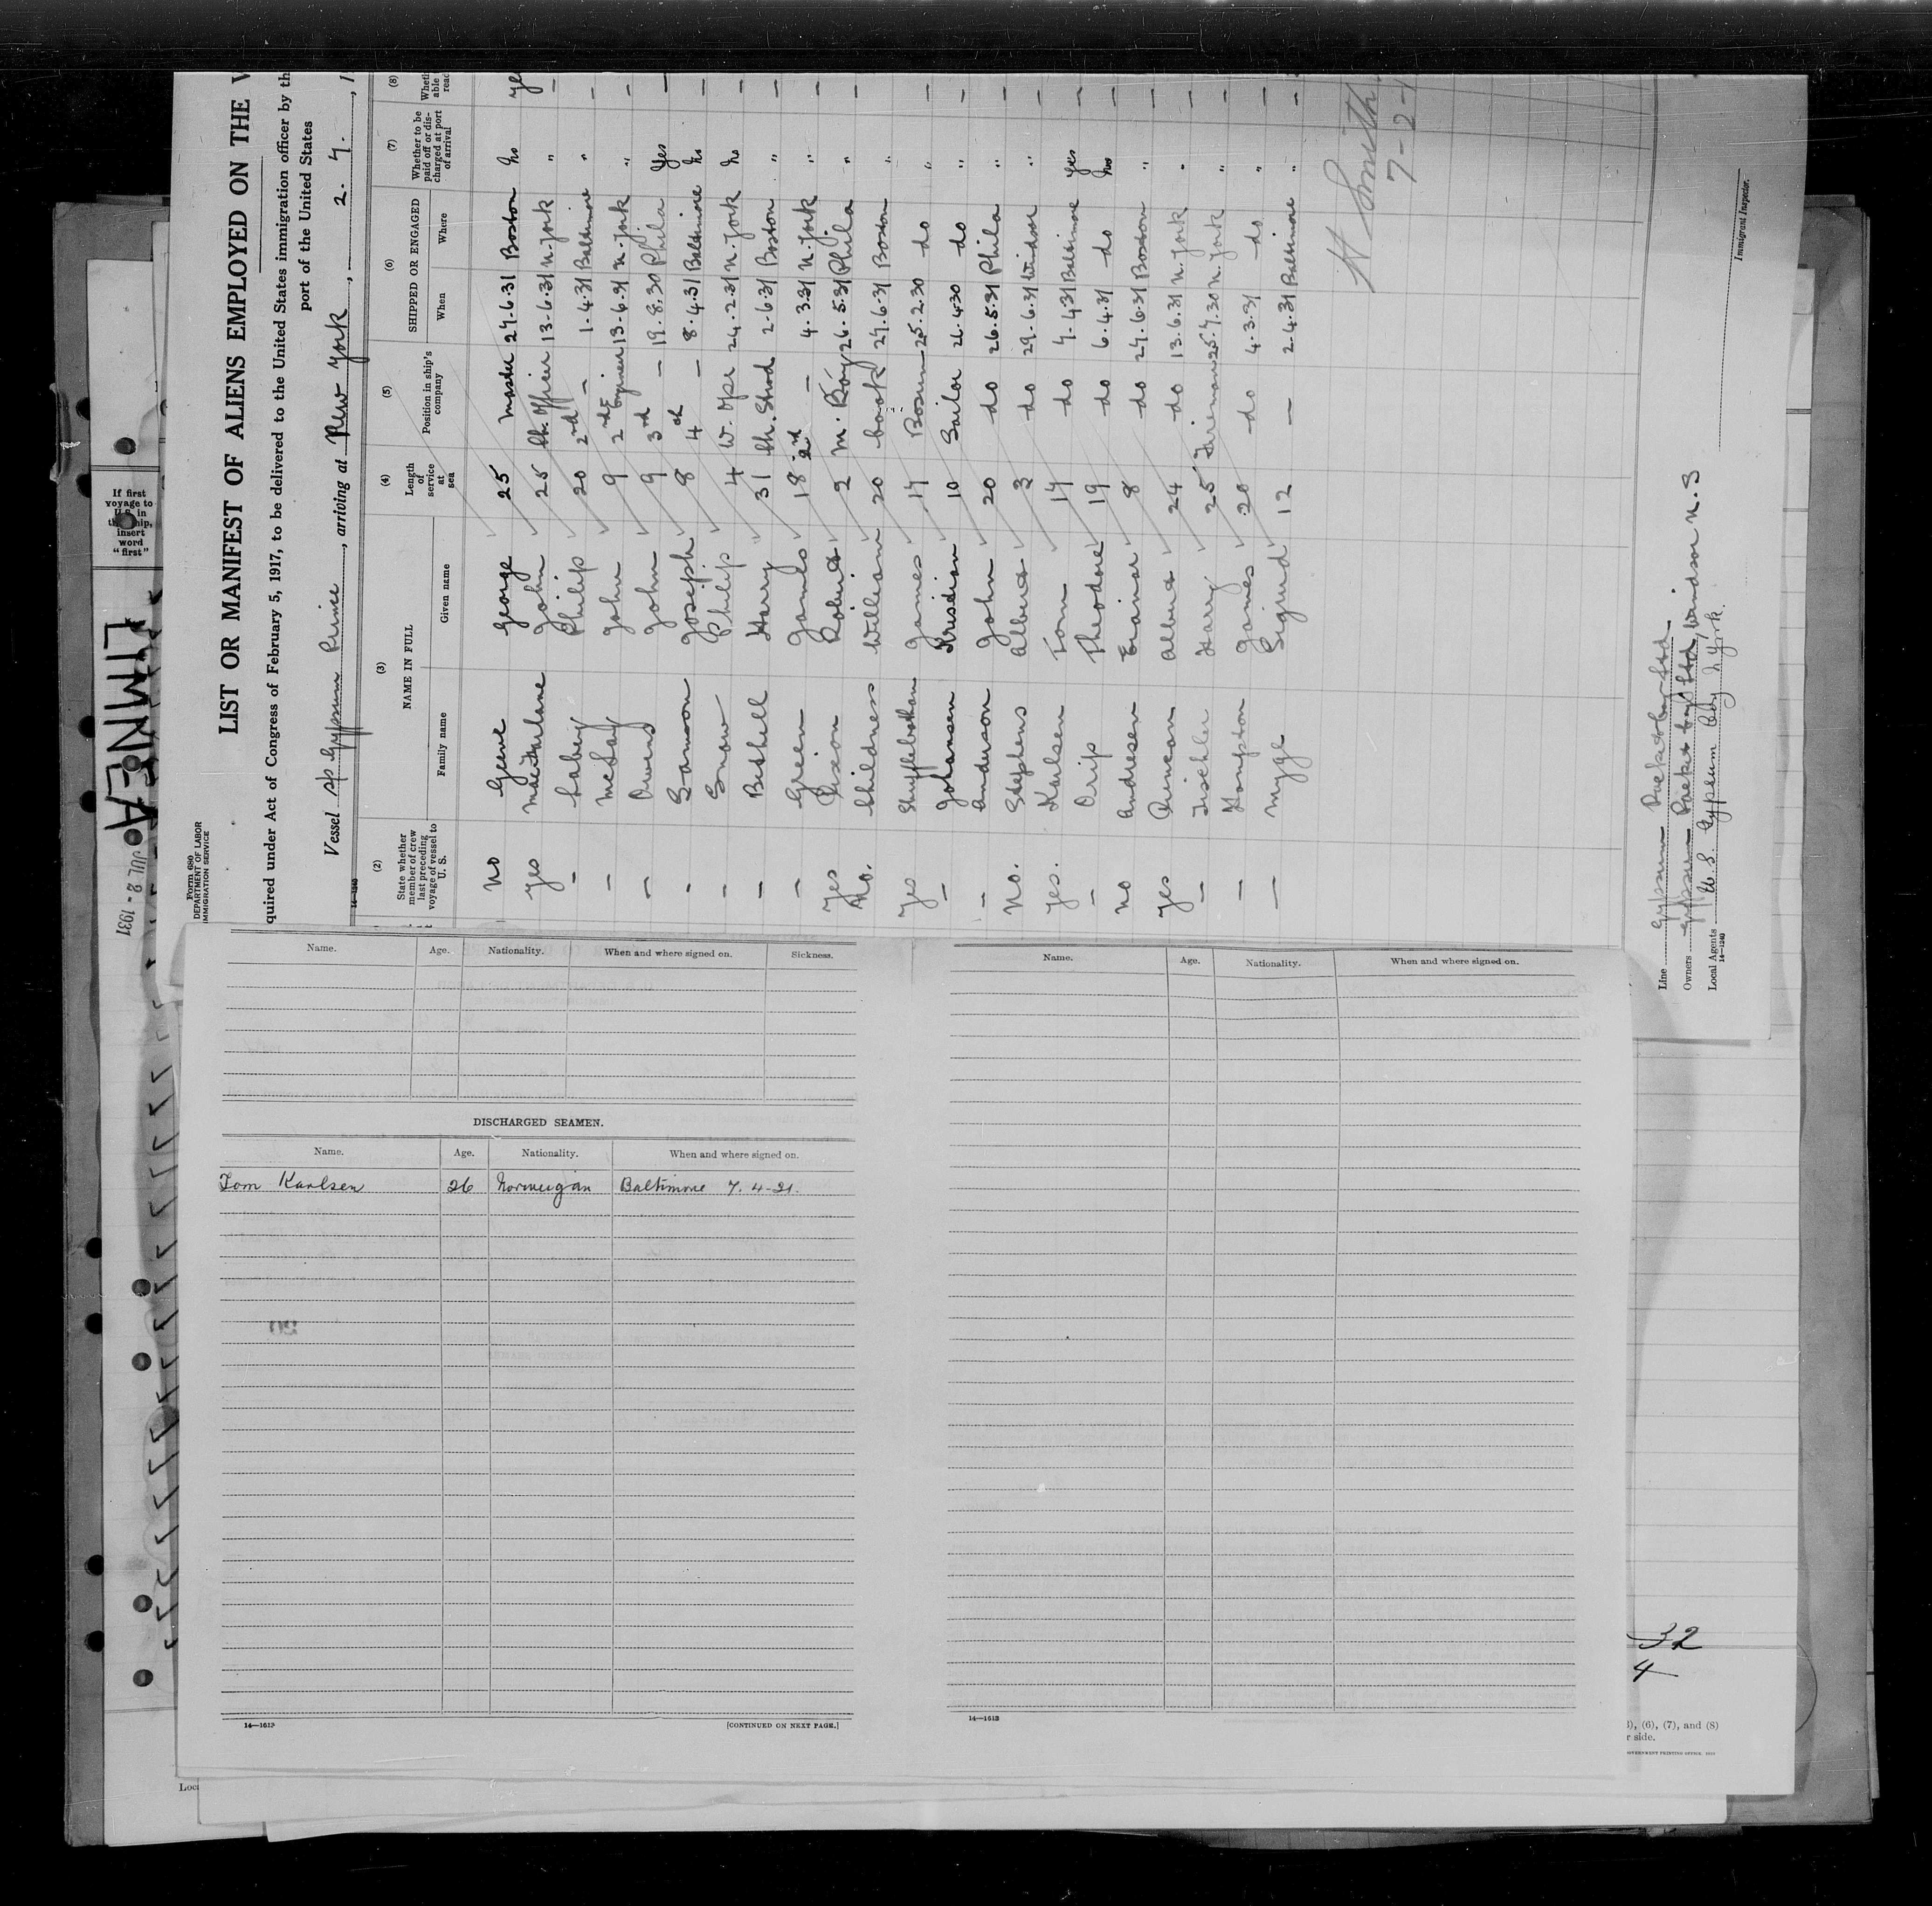 Form 680
DEPARTMENT OF LABOR
IMMIGRATION SERVICE
LIST OR MANIFEST OF ALIENS EMPLOYED ON THE V
quired under Act of Congress of February 5, 1917, to be delivered to the United States immigration officer by th
port of the United States
Vessel Gypsum Prince, arriving at New York, 2.7., 1
14-1240
(2) (3) (4) (5) (6) (7) (8)
State whether member of crew last preceding voyage of vessel to U. S.
NAME IN FULL
Family name Given name
Length of service at sea
Position in ship's company
SHIPPED OR ENGAGED
When Where
Whether to be paid off or discharged at port of arrival
Wheth able read
No George 25 Master 27.6.31 Boston No yes
yes MacFarlane John 25 Ch. Officer 13-6.31 N. York " –
– Philip 20 2nd – 1.4.31 Baltimore " –
– McLay John 9 2nd Engineer 13-6.31 N. York " –
– Owens John 9 3rd – 19.8.30 Phila Yes –
– Joseph 8 4th – 8.4.31 Baltimore No –
– Snow Philip 4 W. Oper 24.2.31 N. York No –
– Harry 31 Ch. Stwd 2.6.31 Boston " –
– Green James 18 2nd – 4.3.31 N. York " –
yes Dixon Robert 2 M. Boy 26.5.31 Phila " –
No. Childness William 20 Cook 27.6.31 Boston "
yes Shufflebotham James 17 Bosun 25.2.30 do " –
– Johansen Kristian 10 Sailor 26.4.30 do " –
– Anderson John 20 do 26.5.31 Phila " –
No. Stephens Albert 3 do 29.6.31 Windsor " –
yes. Karlsen Tom 17 do 7.4.31 Baltimore yes –
– Orip Theodore 19 do 6.4.31 do No –
No Andresen Einar 8 do 27.6.31 Boston " –
yes Duncan Albert 24 do 13.6.31 N. York " –
– Tischler Harry 25 Fireman 25.7.30 N. York " –
– Hompton James 20 do 4.3.31 do " –
– Mygge Sigurd 12 – 2.4.31 Baltimore " –
H Smith
7-2-
Line Gypsum Packet Coy Ltd.
Owners Gypsum Packet Coy Ltd, Windsor N.S
Local Agents U.S. Gypsum Coy N York.
14-1240
Immigrant Inspector.
If first
voyage to
U.S. in
this ship,
insert
word
"first"
LIMNEA
JUL 2 - 1931
Name. Age. Nationality. When and where signed on. Sickness.
DISCHARGED SEAMEN.
Name. Age. Nationality. When and where signed on.
Tom Karlsen 26 Norweigan Baltimore 7.4-31.
14—1613
[CONTINUED ON NEXT PAGE.]
Name. Age. Nationality. When and where signed on.
14—1613
32
4
), (6), (7), and (8)
r side.
GOVERNMENT PRINTING OFFICE
Loca